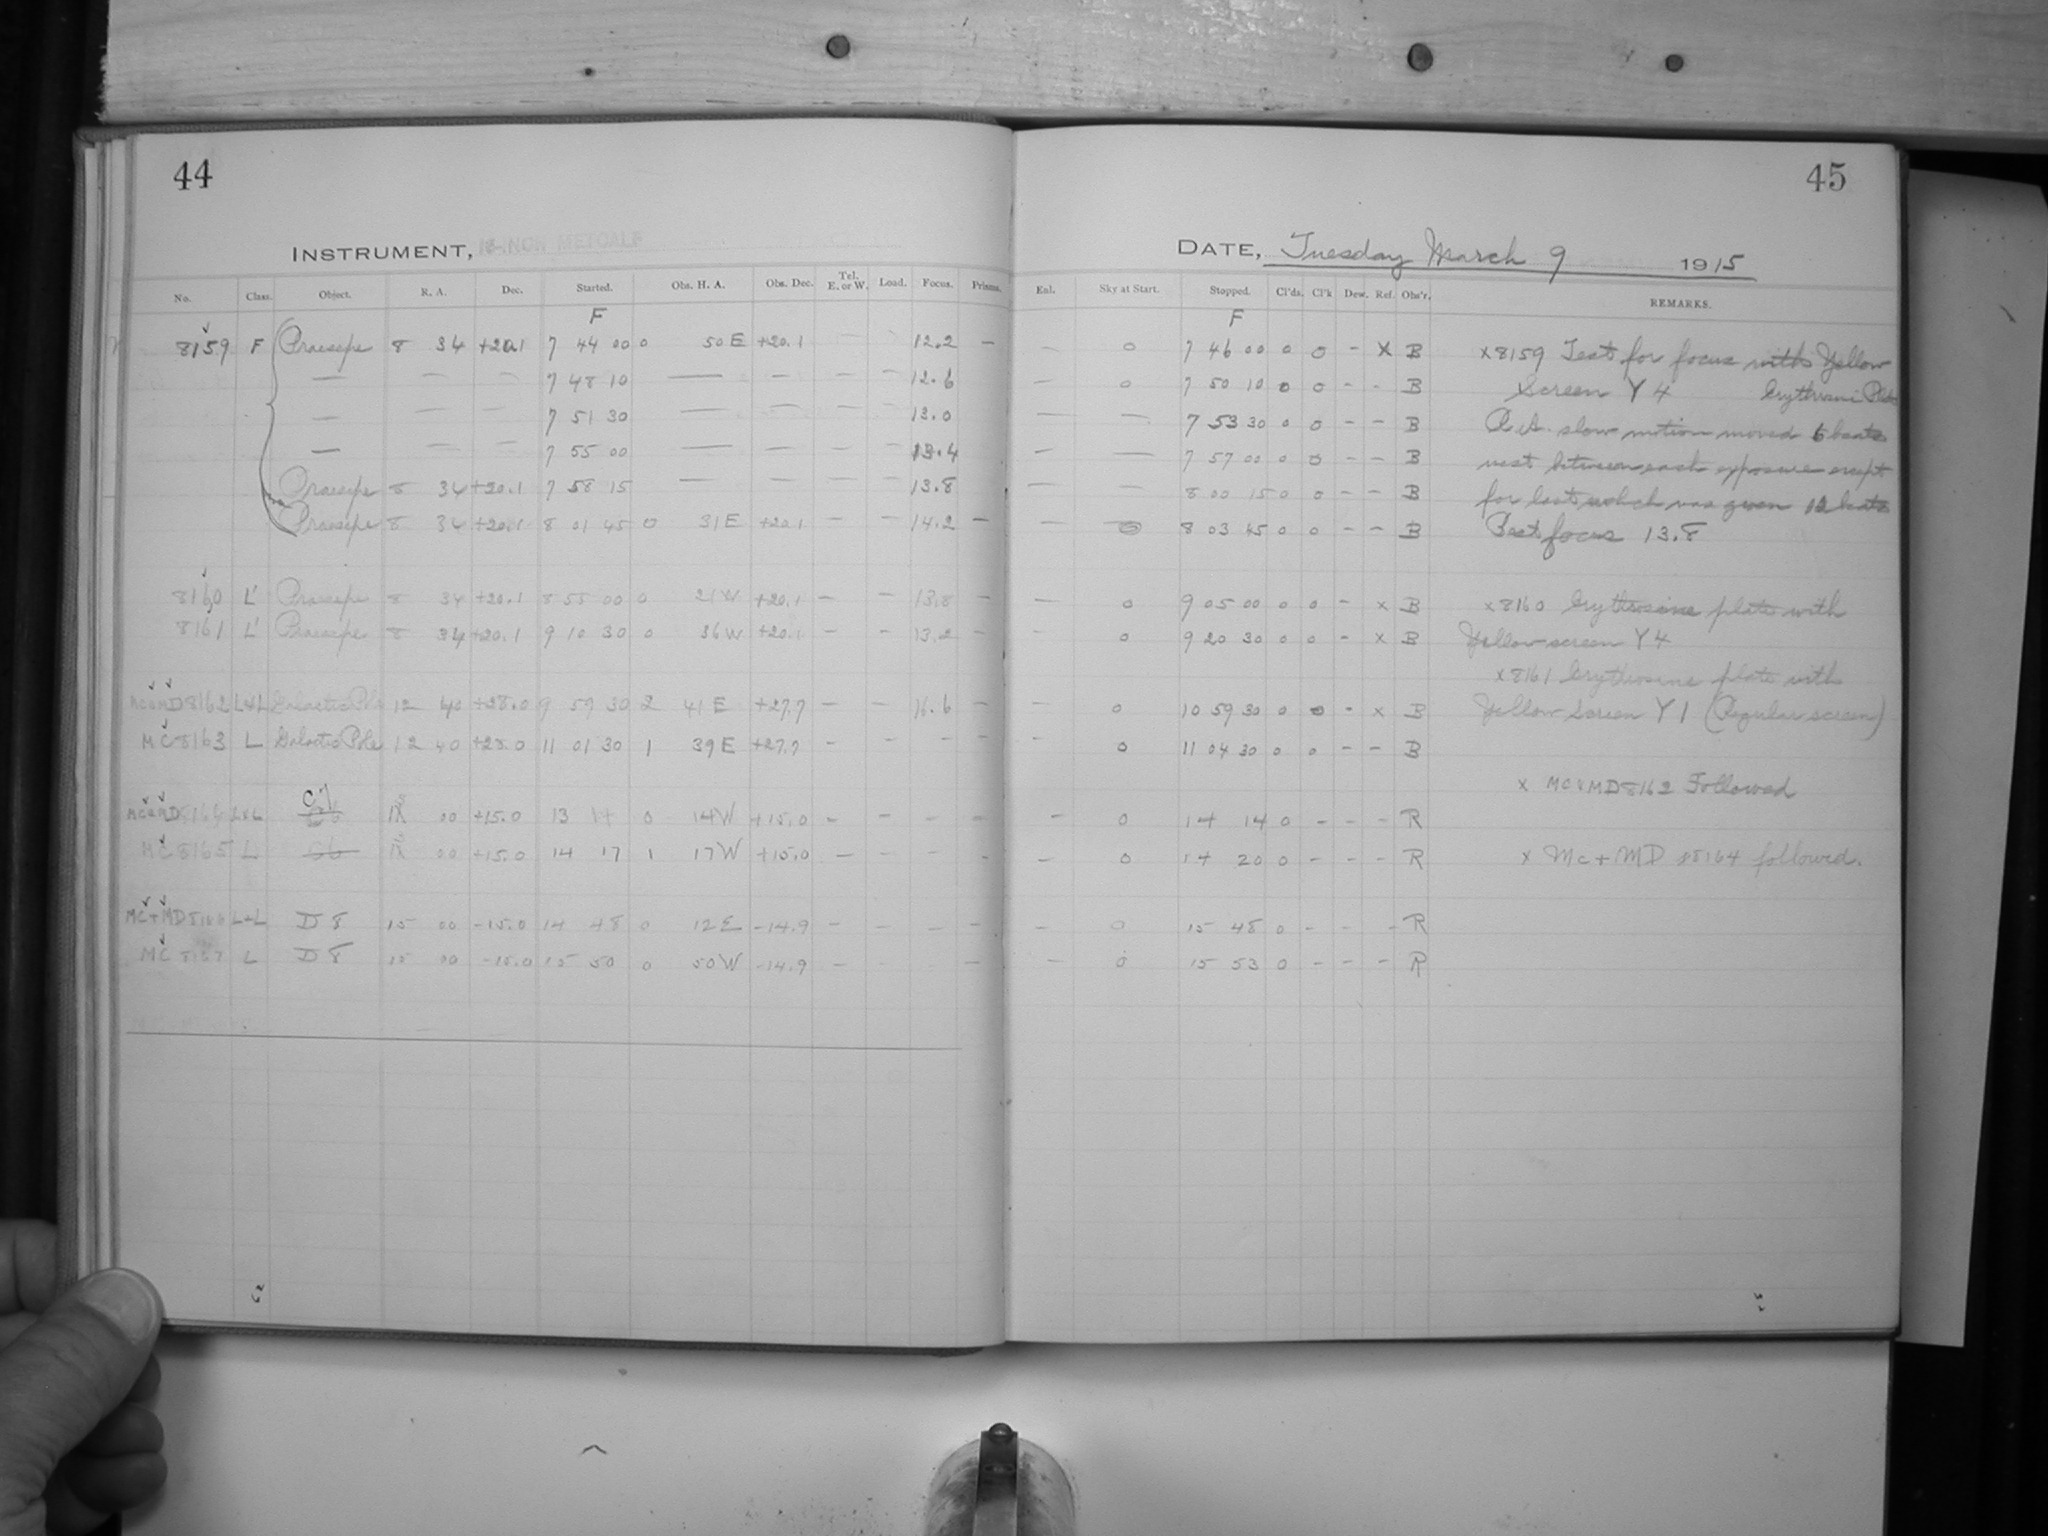 44
45
INSTRUMENT, 16-INCH METCALF
DATE, Tuesday March 9 1915
No. Class. Object. R. A. Dec. Started. Obs. H. A. Obs. Dec. Tel. E. or W. Load. Focus. Prisms. Enl. Sky at Start. Stopped. Cl'ds. Cl'k Dew. Ref. Obs'r. REMARKS.
F F
8159 F Praesepe 8 34 +20.1 7 44 00 0 50 E +20.1 — — 12.2 — — 0 7 46 00 0 0 - X B x8159 Test for focus with Yellow
— — — 7 48 10 — — — — 12.6 — 0 7 50 10 0 0 - - B Screen Y 4 Erythrosine Plate
— — — 7 51 30 — — — — 13.0 — — 7 53 30 0 0 - - B R.A. slow motion moved 6 beats
— — — 7 55 00 — — — — 13.4 — — 7 57 00 0 0 - - B west between each exposure except
Praesepe 8 34 +20.1 7 58 15 — — — — 13.8 — — 8 00 15 0 0 - - B for last which was given 12 beats
Praesepe 8 34 +20.1 8 01 45 0 31 E +20.1 — — 14.2 — — 0 8 03 45 0 0 - - B Best focus 13.8
8160 L' Praesepe 8 34 +20.1 8 55 00 0 21 W +20.1 — — 13.8 — — 0 9 05 00 0 0 - x B x8160 Erythrosine plate with
8161 L' Praesepe 8 34 +20.1 9 10 30 0 36 W +20.1 — — 13.2 — — 0 9 20 30 0 0 - x B Yellow screen Y 4
x8161 Erythrosine plate with
MC&MD8162 L&L Galactic Pole 12 40 +28.0 9 59 30 2 41 E +27.7 — — 16.6 — — 0 10 59 30 0 0 - x B Yellow Screen Y 1 (Regular screen)
MC8163 L Galactic Pole 12 40 +28.0 11 01 30 1 39 E +27.7 - — — — — 0 11 04 30 0 0 - - B
x MC&MD8162 Followed
MC&MD8164 L&L +15.0 13 14 0 14 W +15.0 - - - - — 0 14 14 0 - - - R
MC8165 L +15.0 14 17 1 17 W +15.0 — - - - — 0 14 20 0 - - - R x Mc + MD 8164 followed.
MC+MD8166 L+L D 8 15 00 -15.0 14 48 0 12 E -14.9 - - - - - 0 15 48 0 - - - R
MC 8167 L D 8 15 00 -15.0 15 50 0 50 W -14.9 - - - - - 0 15 53 0 - - - R